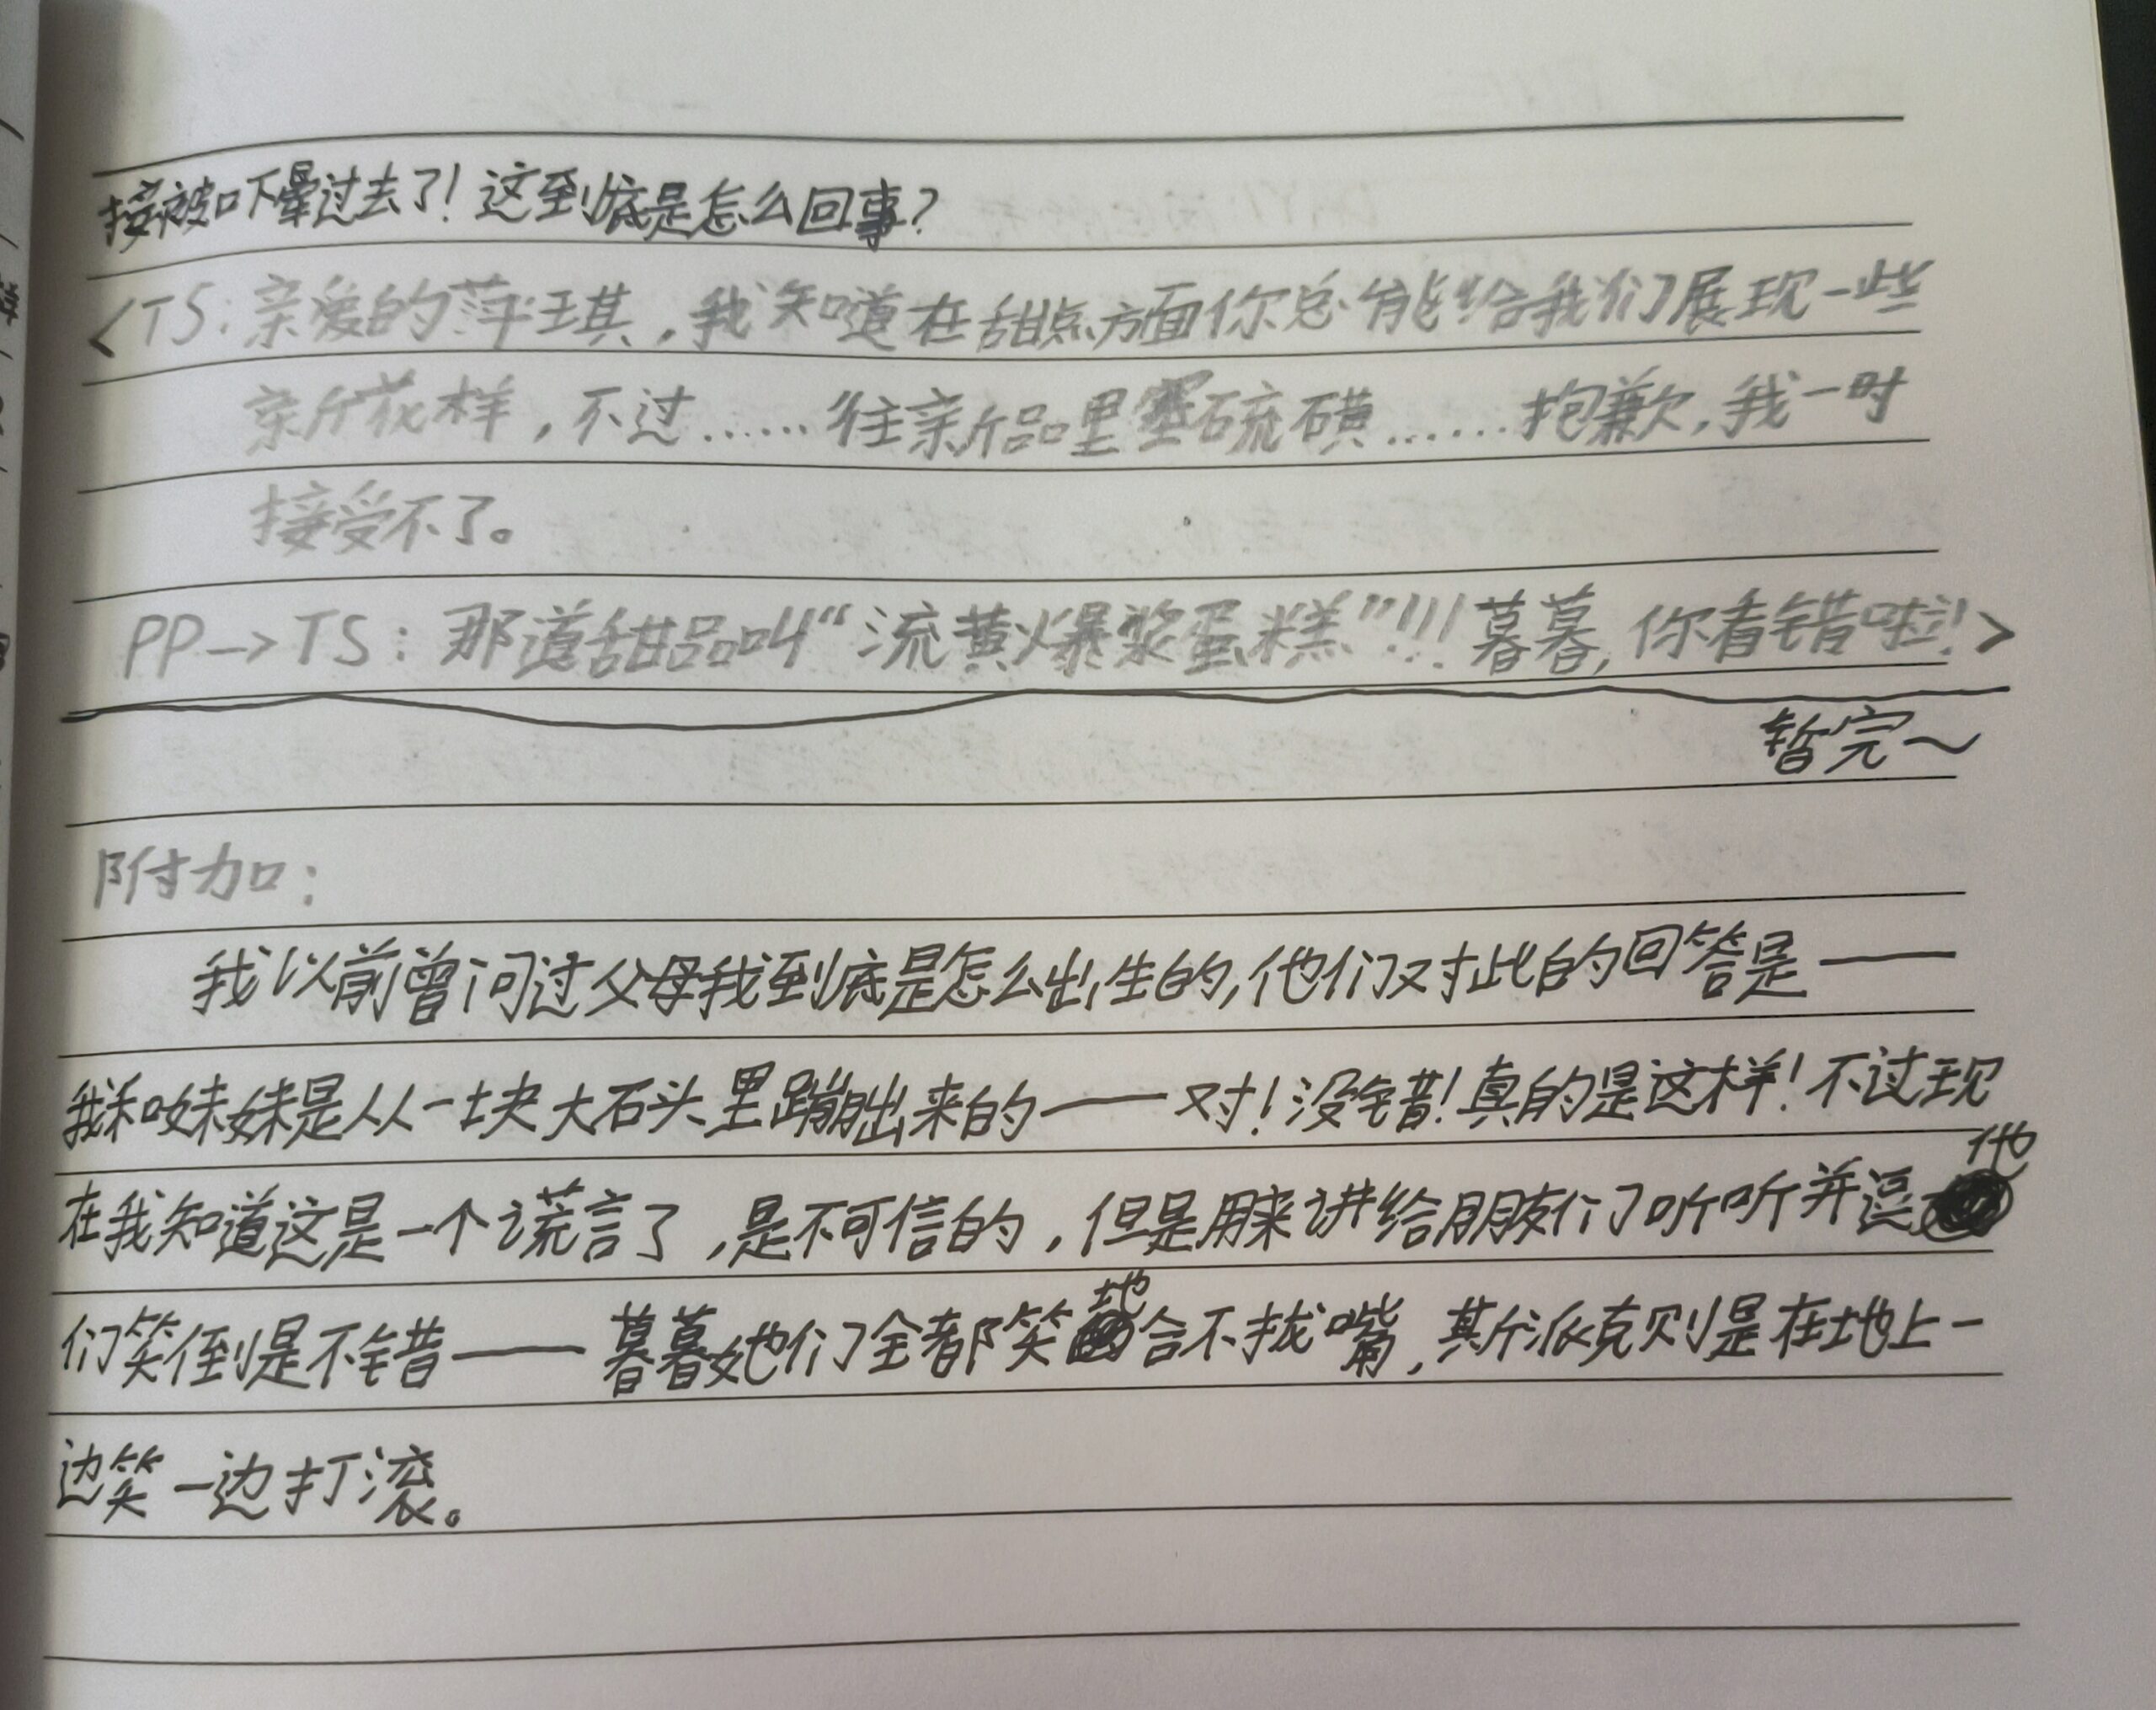 接被吓晕过去了！这到底是怎么回事？
<TS：亲爱的萍琪，我知道在甜点方面你总能给我们展现一些
新花样，不过……往新品里塞硫磺……抱歉，我一时
接受不了。
PP→TS：那道甜品叫“流黄爆浆蛋糕”!!!暮暮，你看错啦！>
暂完～
附加：
我以前曾问过父母我到底是怎么出生的，他们对此的回答是——
我和妹妹是从一块大石头里蹦出来的——对！没错！真的是这样！不过现
在我知道这是一个谎言了，是不可信的，但是用来讲给朋友们听听并逗他
们笑倒是不错——暮暮她们全都笑地合不拢嘴，斯派克则是在地上一
边笑一边打滚。